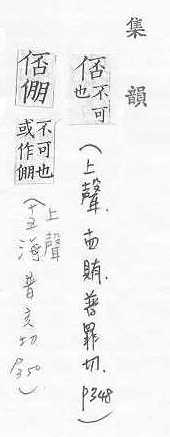 集韻
㕻不可也(上聲.十四賄.普罪切.P348)
㕻倗不可也或作倗(上聲十五海普亥切P350.)